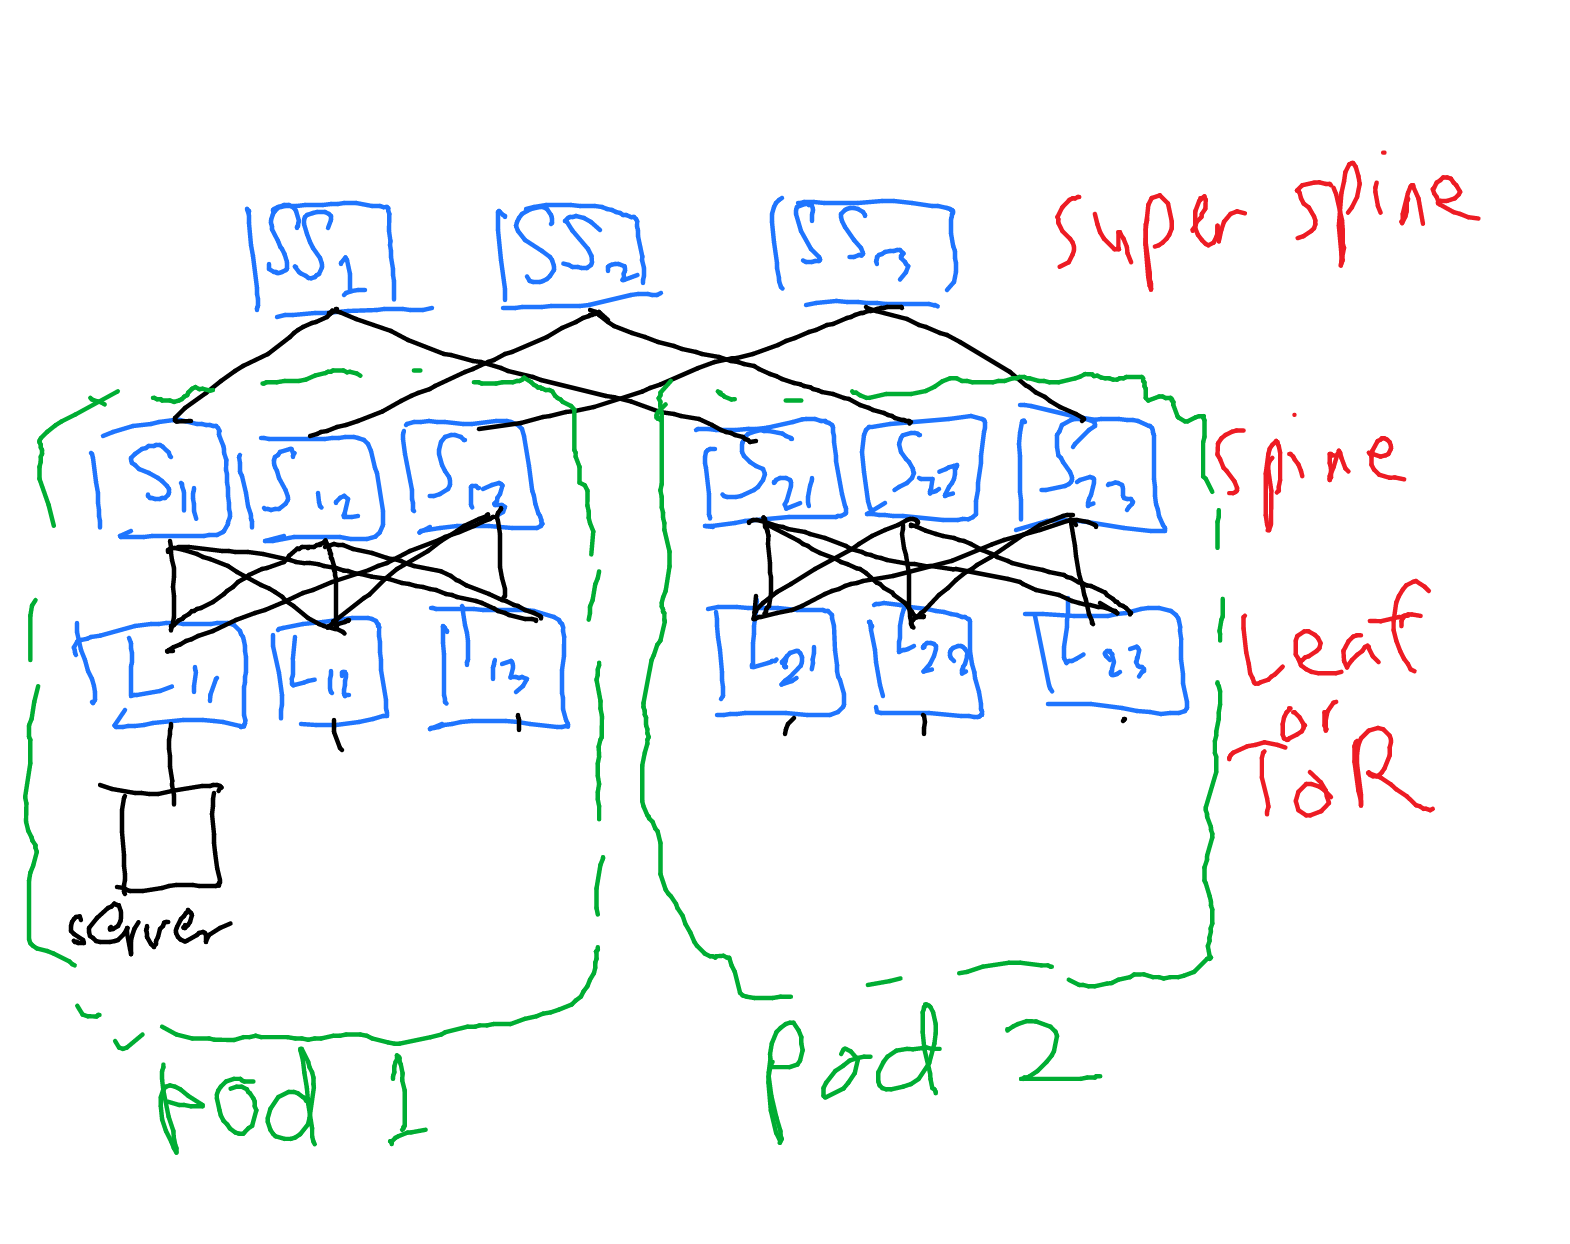 SS1 SS2 SS3 super spine
S11 S12 S13 S21 S22 S23 spine
L11 L12 L13 L21 L22 L23 Leaf
or
ToR
server
pod 1 pod 2